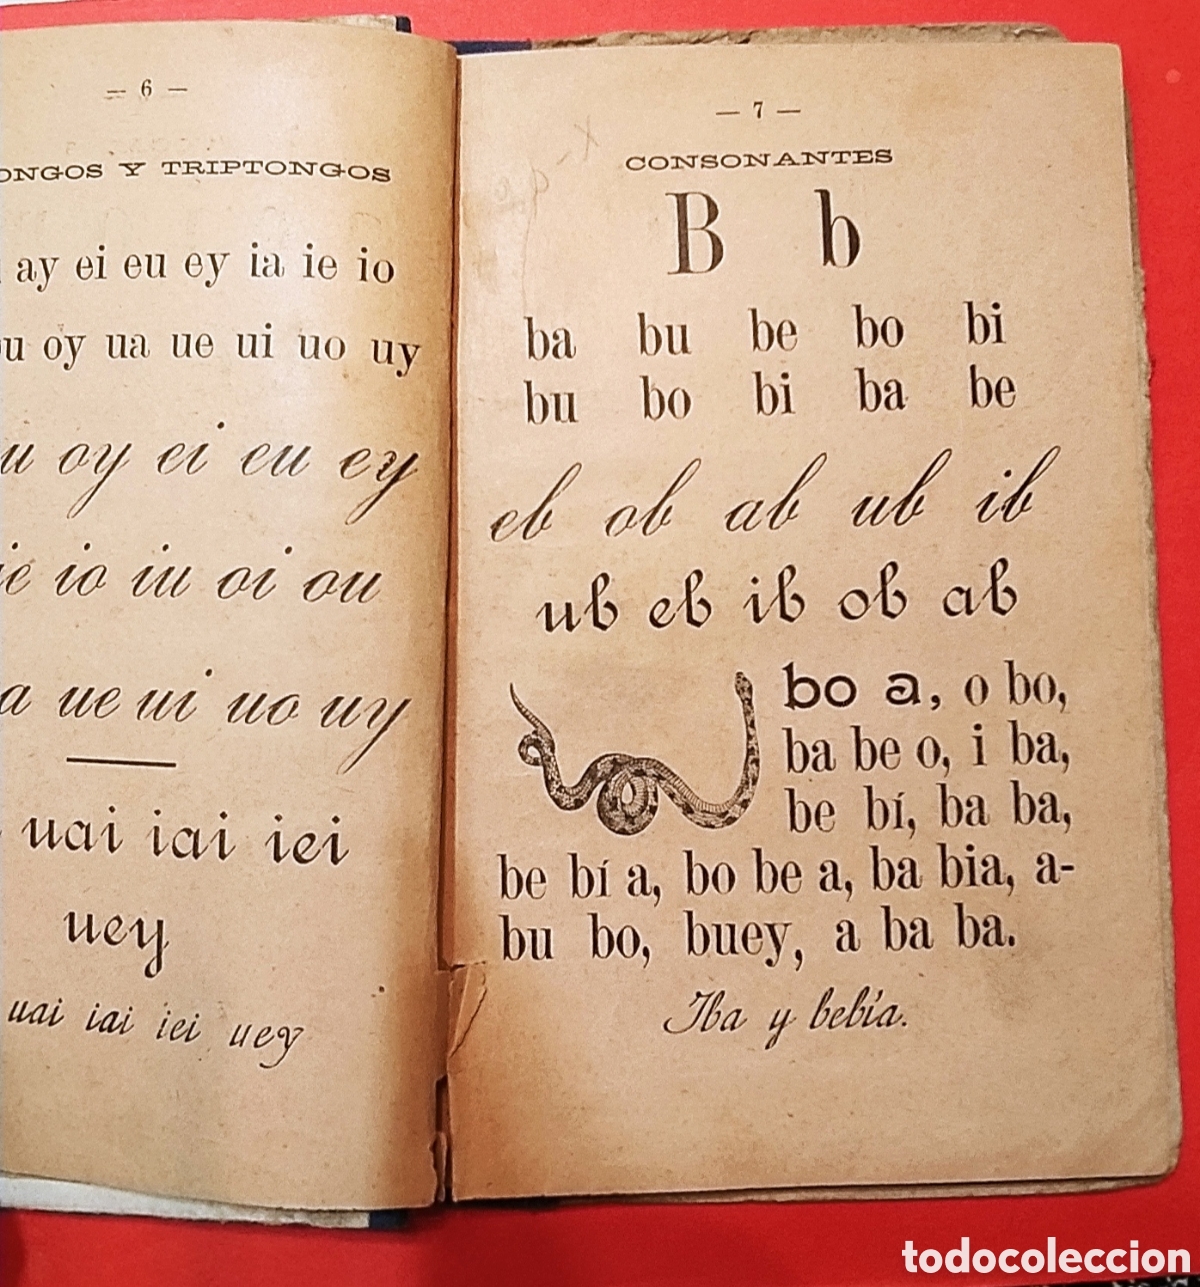 — 6 —
ONGOS Y TRIPTONGOS
ay ei eu ey ia ie io
u oy ua ue ui uo uy
u oy ei eu ey
ie io iu oi ou
a ue ui uo uy
uai iai iei
uey
uai iai iei uey
— 7 —
CONSONANTES
B b
ba bu be bo bi
bu bo bi ba be
eb ob ab ub ib
ub eb ib ob ab
bo a, o bo,
ba be o, i ba,
be bí, ba ba,
be bí a, bo be a, ba bia, a-
bu bo, buey, a ba ba.
Iba y bebía.
todocoleccion